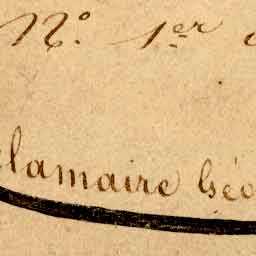 N.º 1.er
lamaire Géo